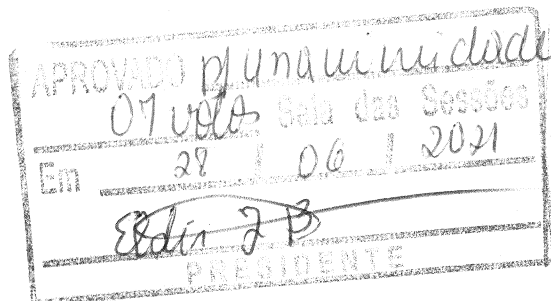 APROVADO p/unanimidade
07 votos Sala das Sessões
Em 28 / 06 / 2021
PRESIDENTE